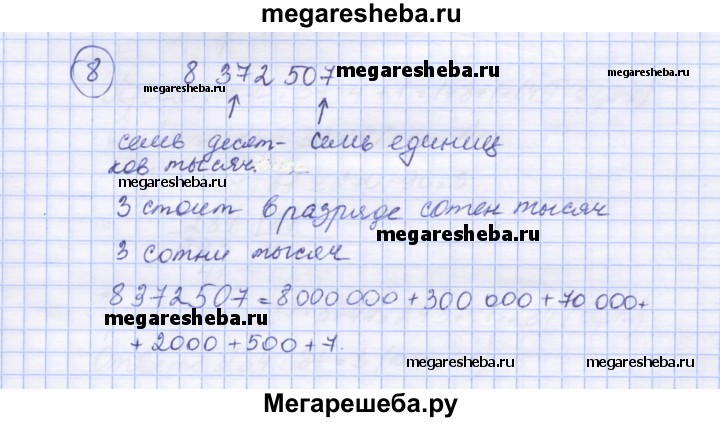 megaresheba.ru
8 8 372 507 megaresheba.ru
megaresheba.ru
семь десят- семь единиц
ков тысяч.
megaresheba.ru
3 стоит в разряде сотен тысяч
megaresheba.ru
3 сотни тысяч
8372507 = 8000 000 + 300 000 + 70 000 +
megaresheba.ru
+ 2000 + 500 + 7.
megaresheba.ru
Мегарешеба.ру